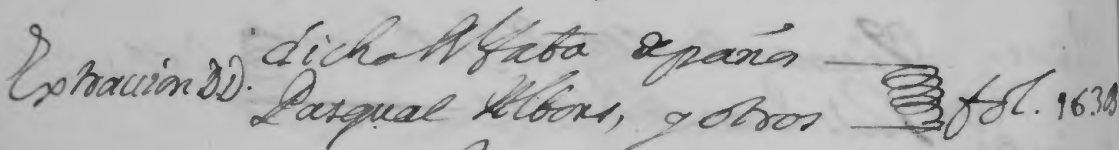 Extraccion DD. dicho Alfabo de paños
Pasqual Albors, y otros fol. 163.